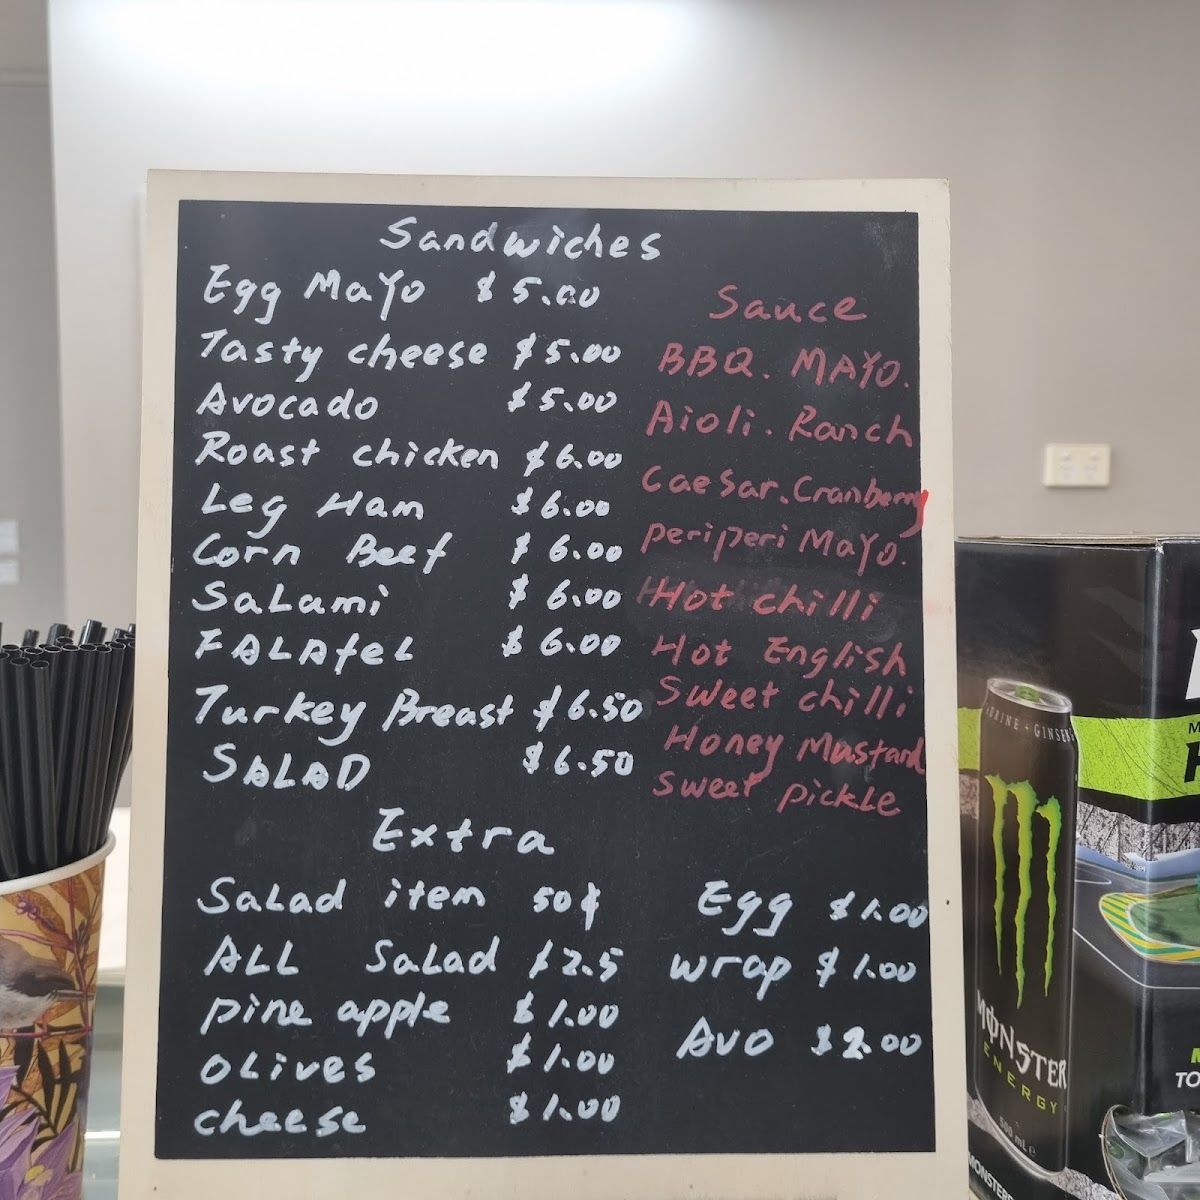 Sandwiches
Egg Mayo $5.00
Tasty cheese $5.00
Avocado $5.00
Roast chicken $6.00
Leg Ham $6.00
Corn Beef $6.00
SaLami $6.00
FALAfeL $6.00
Turkey Breast $6.50
SALAD $6.50
Sauce
BBQ. MAYO.
Aioli. Ranch
Caesar. Cranberry
periperi Mayo.
Hot chilli
Hot English
Sweet chilli
Honey Mustard
sweet pickLe
Extra
SaLad item 50¢
ALL SaLad $2.5
pine apple $1.00
oLives $1.00
cheese $1.00
Egg $1.00
wrap $1.00
Avo $2.00
TAURINE + GINSENG
MONSTER
ENERGY
500 mL e
MONSTER
TO